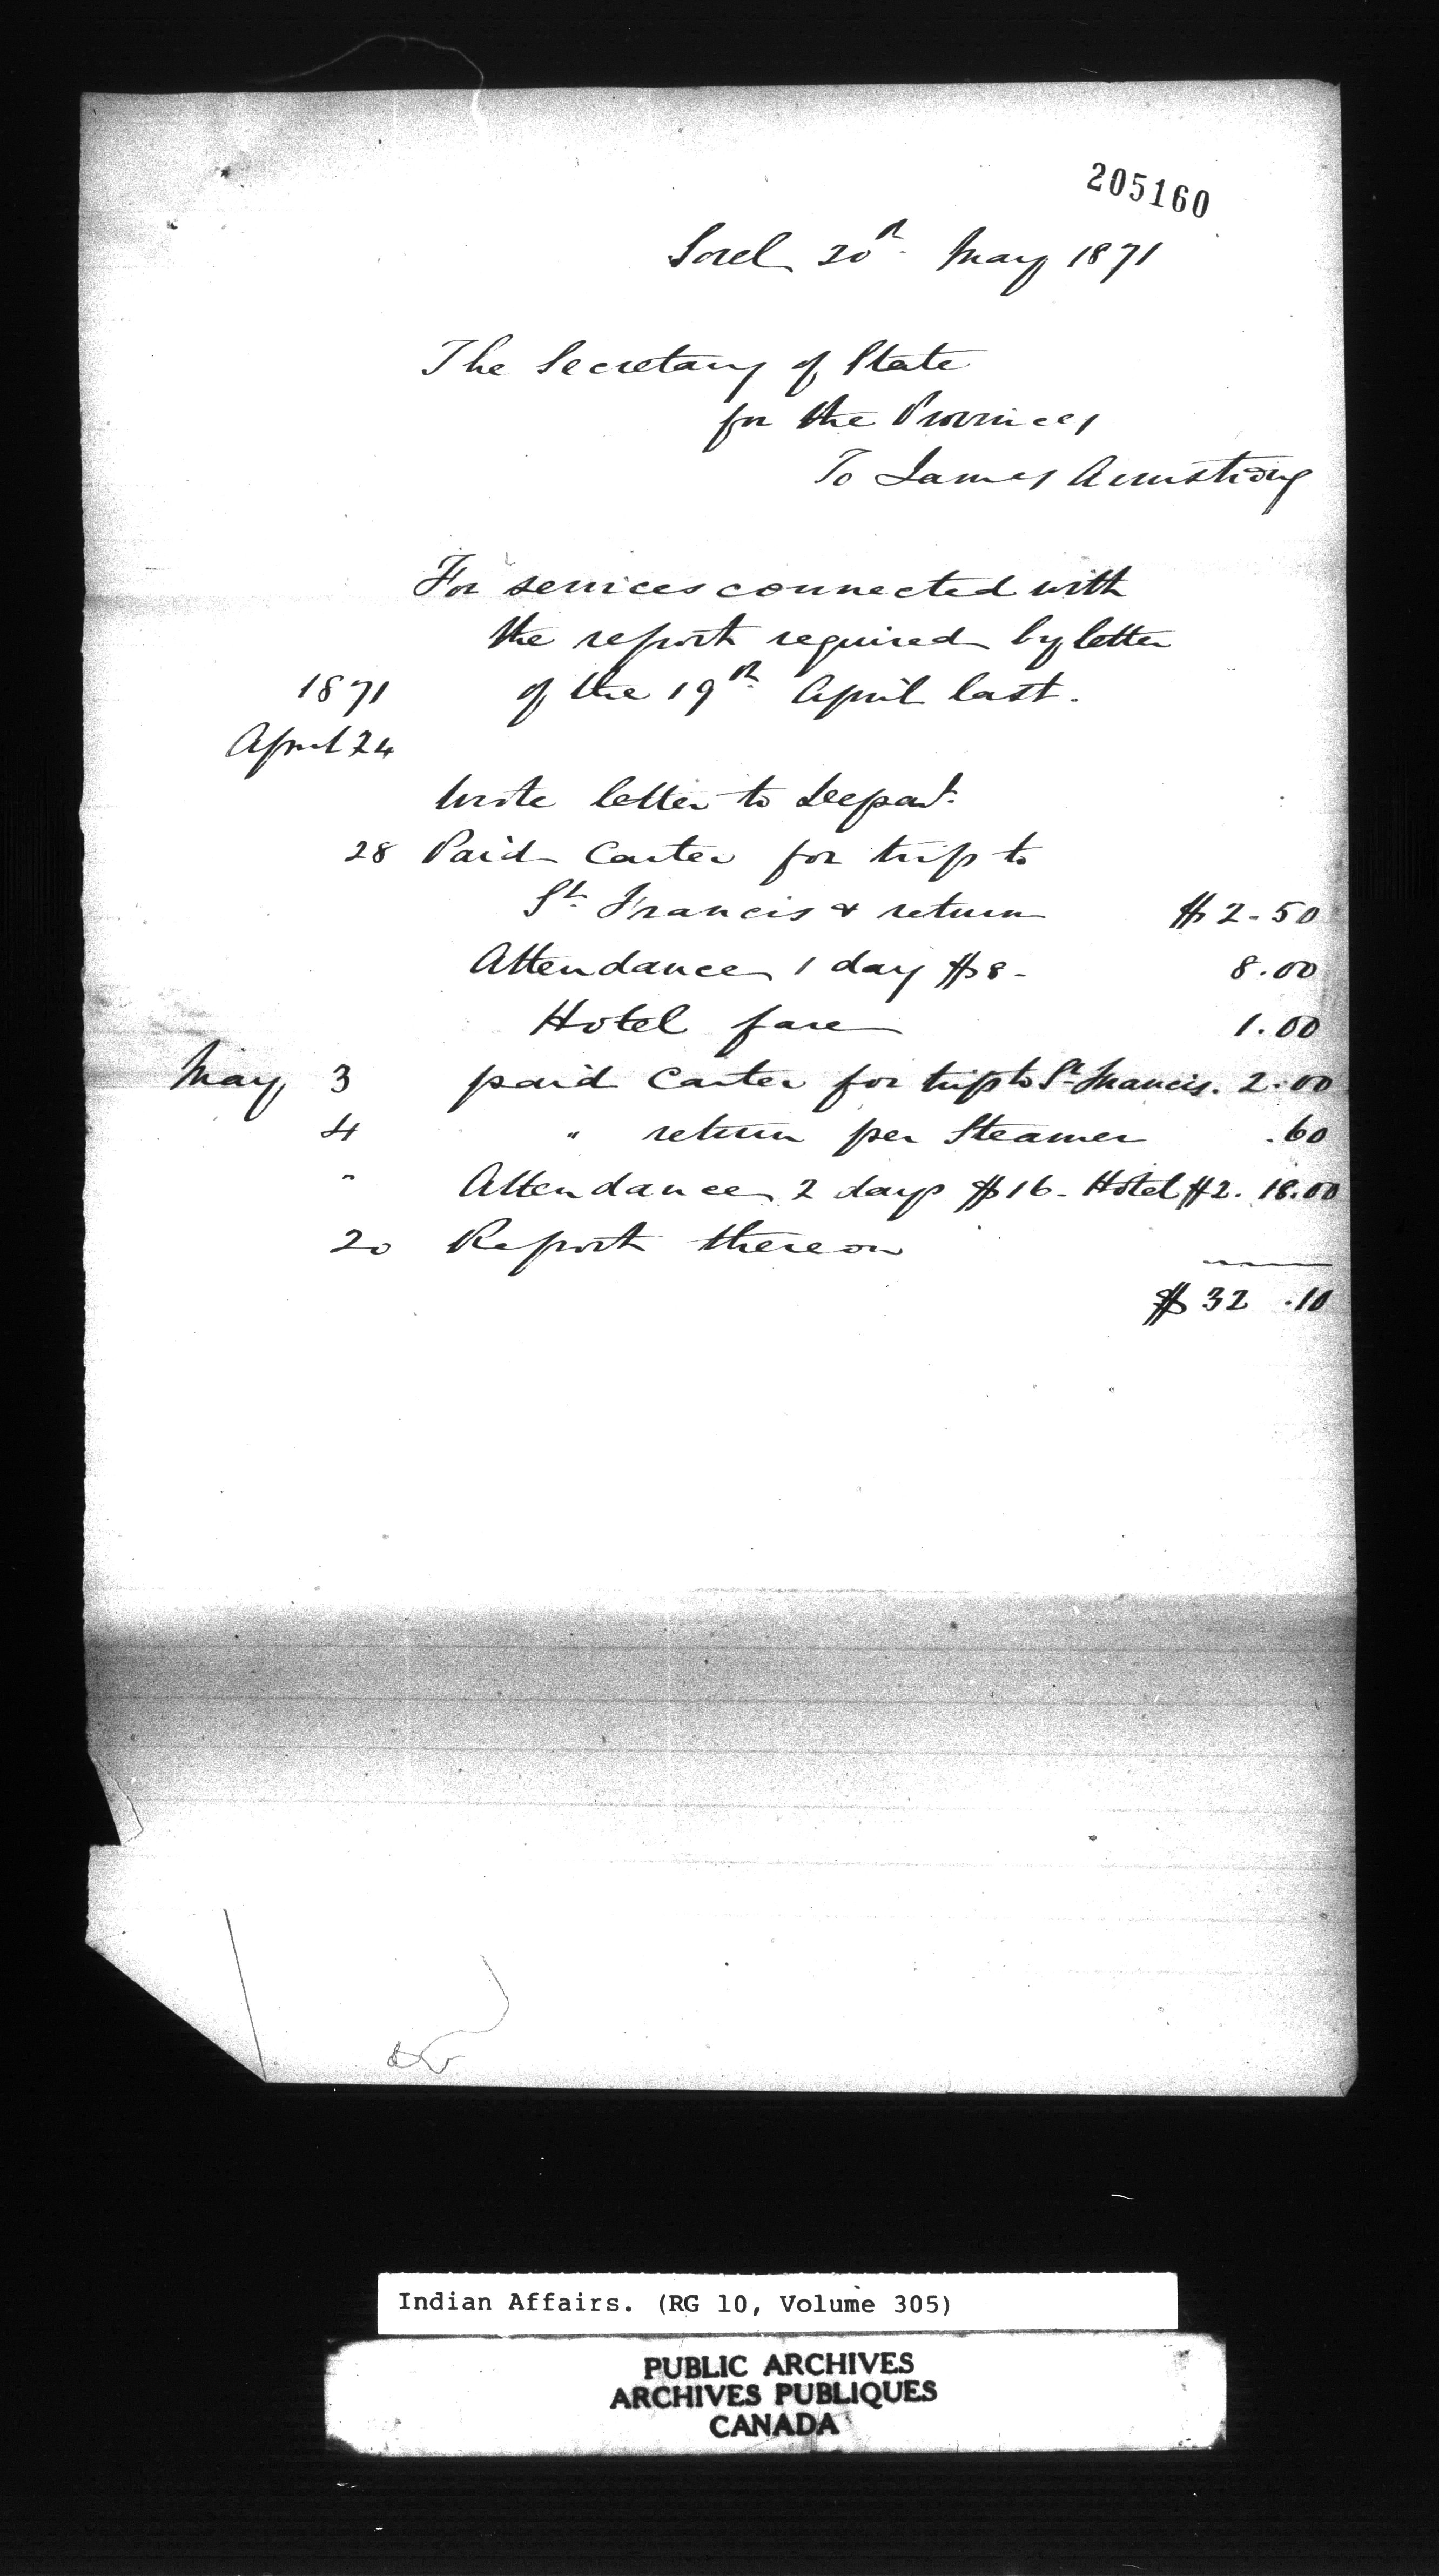 205160
Sorel 20th May 1871
The Secretary of State
for the Provinces
To James Armstrong
For services connected with
the report required by letter
1871 of the 19th April last.
April 24
Wrote letter to Depart.
28 Paid Carter for trip to
St. Francis & return $2-50
Attendance 1 day $8- 8.00
Hotel fare 1.00
May 3 paid Carter for trip to St. Francis. 2.00
4 " return per Steamer .60
" Attendance 2 days $16- Hotel $2. 18.00
20 Report thereon
$32.10
Indian Affairs. (RG 10, Volume 305)
PUBLIC ARCHIVES
ARCHIVES PUBLIQUES
CANADA